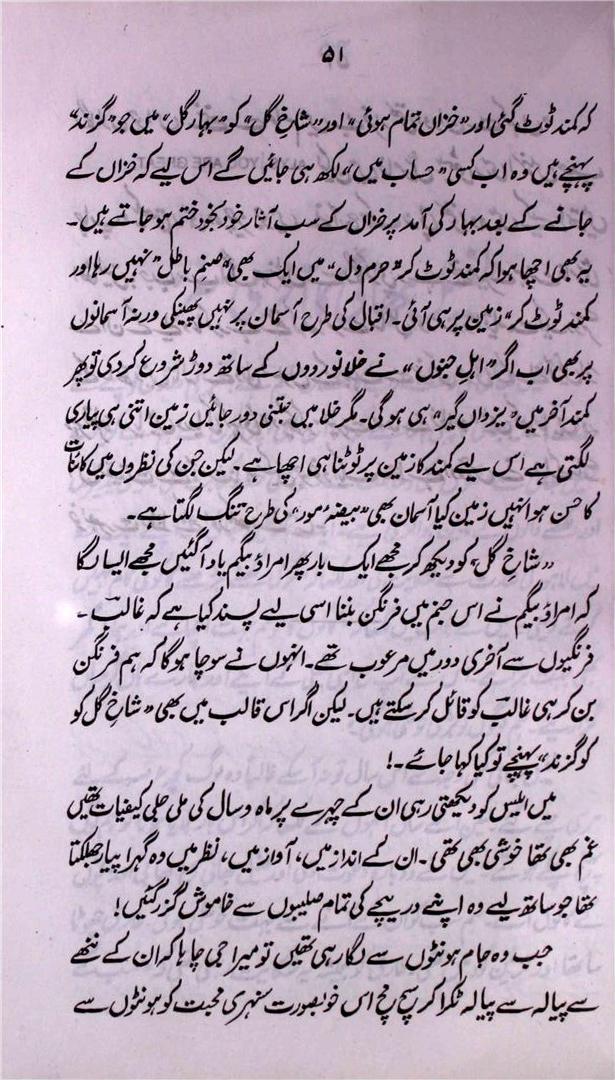 ۵۱
کہ کمند ٹوٹ گئی اور "خزاں تمام ہوئی" اور "شاخِ گل" کو "بہار گل" میں جو "گزند"
پہنچے ہیں وہ اب کسی "حساب میں" لکھ ہی جائیں گے اس لیے کہ خزاں کے
جانے کے بعد بہار کی آمد پر خزاں کے سب آثار خود بخود ختم ہو جاتے ہیں۔
یہ بھی اچھا ہوا کہ کمند ٹوٹ کر "حرم دل" میں ایک بھی "صنمِ باطل" نہیں رہا اور
کمند ٹوٹ کر "زمین پر ہی آئی۔ اقبال کی طرح آسمان پر نہیں پھینکی ورنہ آسمانوں
پر بھی اب اگر "اہلِ جنوں" نے خلا نوردوں کے ساتھ دوڑ شروع کر دی تو پھر
کمند آخر میں "یزداں گیر" ہی ہو گی۔ مگر خلا میں جتنی دور جائیں زمین اتنی ہی پیاری
لگتی ہے اس لیے کمند کا زمین پر ٹوٹنا ہی اچھا ہے۔ لیکن جن کی نظروں میں کائنات
کا حسن ہو انہیں زمین کیا آسمان بھی "بیضۂ مور" کی طرح تنگ لگتا ہے۔
"شاخِ گل" کو دیکھ کر مجھے ایک بار پھر امراؤ بیگم یاد آ گئیں مجھے ایسا لگا
کہ امراؤ بیگم نے اس جنم میں فرنگن بننا اسی لیے پسند کیا ہے کہ غالبؔ ۔
فرنگیوں سے آخری دور میں مرعوب تھے۔ انہوں نے سوچا ہو گا کہ ہم فرنگن
بن کر ہی غالبؔ کو قائل کر سکتے ہیں۔ لیکن اگر اس قالب میں بھی "شاخِ گل کو
کو گزند" پہنچے تو کیا کہا جائے۔!
میں ایلس کو دیکھتی رہی ان کے چہرے پر ماہ و سال کی ملی جلی کیفیات تھیں
غم بھی تھا خوشی بھی تھی۔ ان کے انداز میں، آواز میں، نظر میں وہ گہرا پیار جھلکتا
تھا جو ساتھ لیے وہ اپنے دریچے کی تمام صلیبوں سے خاموش گزر گئیں!
جب وہ جام ہونٹوں سے لگا رہی تھیں تو میرا جی چاہا کہ ان کے ننھے
سے پیالہ سے پیالہ ٹکرا کر سچ مچ اس خوبصورت سنہری محبت کو ہونٹوں سے